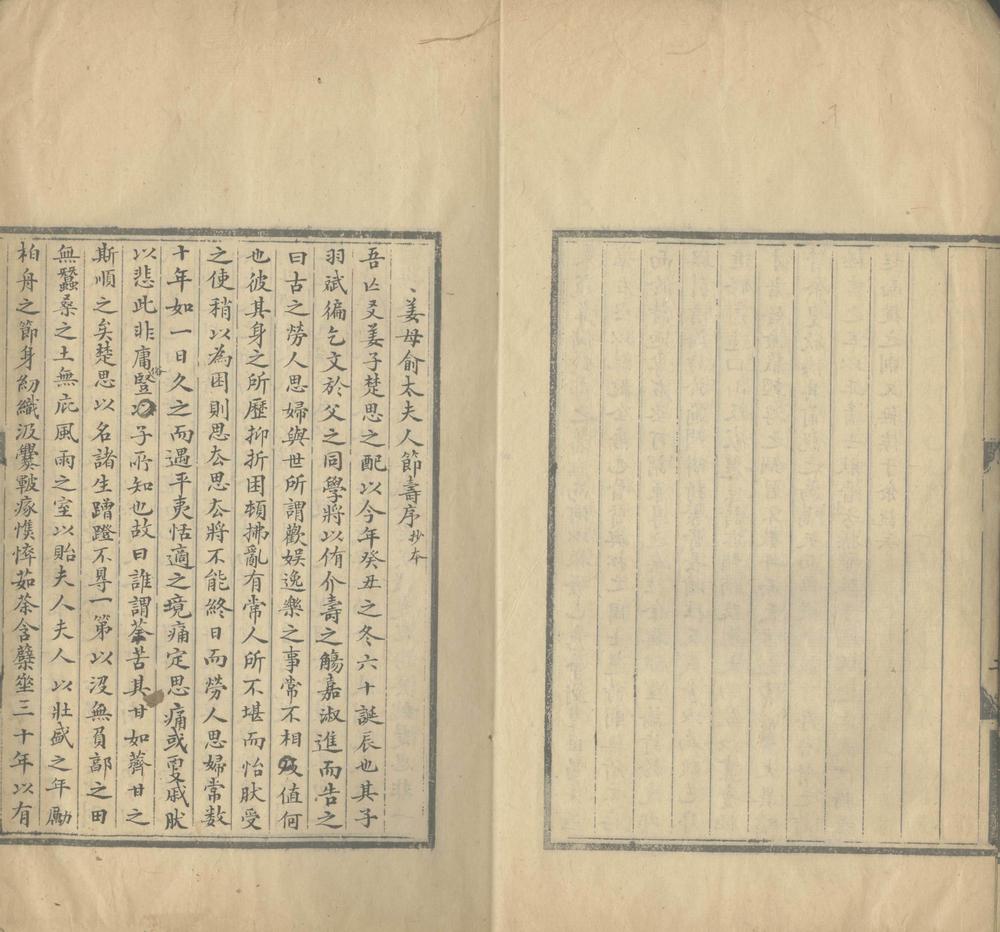 姜母俞太夫人節壽序抄本
吾亡友姜子楚思之配以今年癸丑之冬六十誕辰也其子
羽斌徧乞文於父之同學將以侑介壽之觴嘉淑進而告之
曰古之勞人思婦與世所謂歡娱逸樂之事常不相值何
也彼其身之所歷抑折困頓拂亂有常人所不堪而怡肰受
之使稍以為困則思去思去將不能終日而勞人思婦常数
十年如一日久之而遇平夷恬適之境痛定思痛或更戚肰
以悲此非庸豎子所知也故曰誰謂荼苦其甘如薺甘之
斯順之矣楚思以名諸生蹭蹬不㝵一第以沒無負郭之田
無蠶桑之土無庇風雨之室以貽夫人夫人以壯盛之年勵
柏舟之節身紉織汲爨皸瘃憔悴茹荼含櫱垂三十年以有